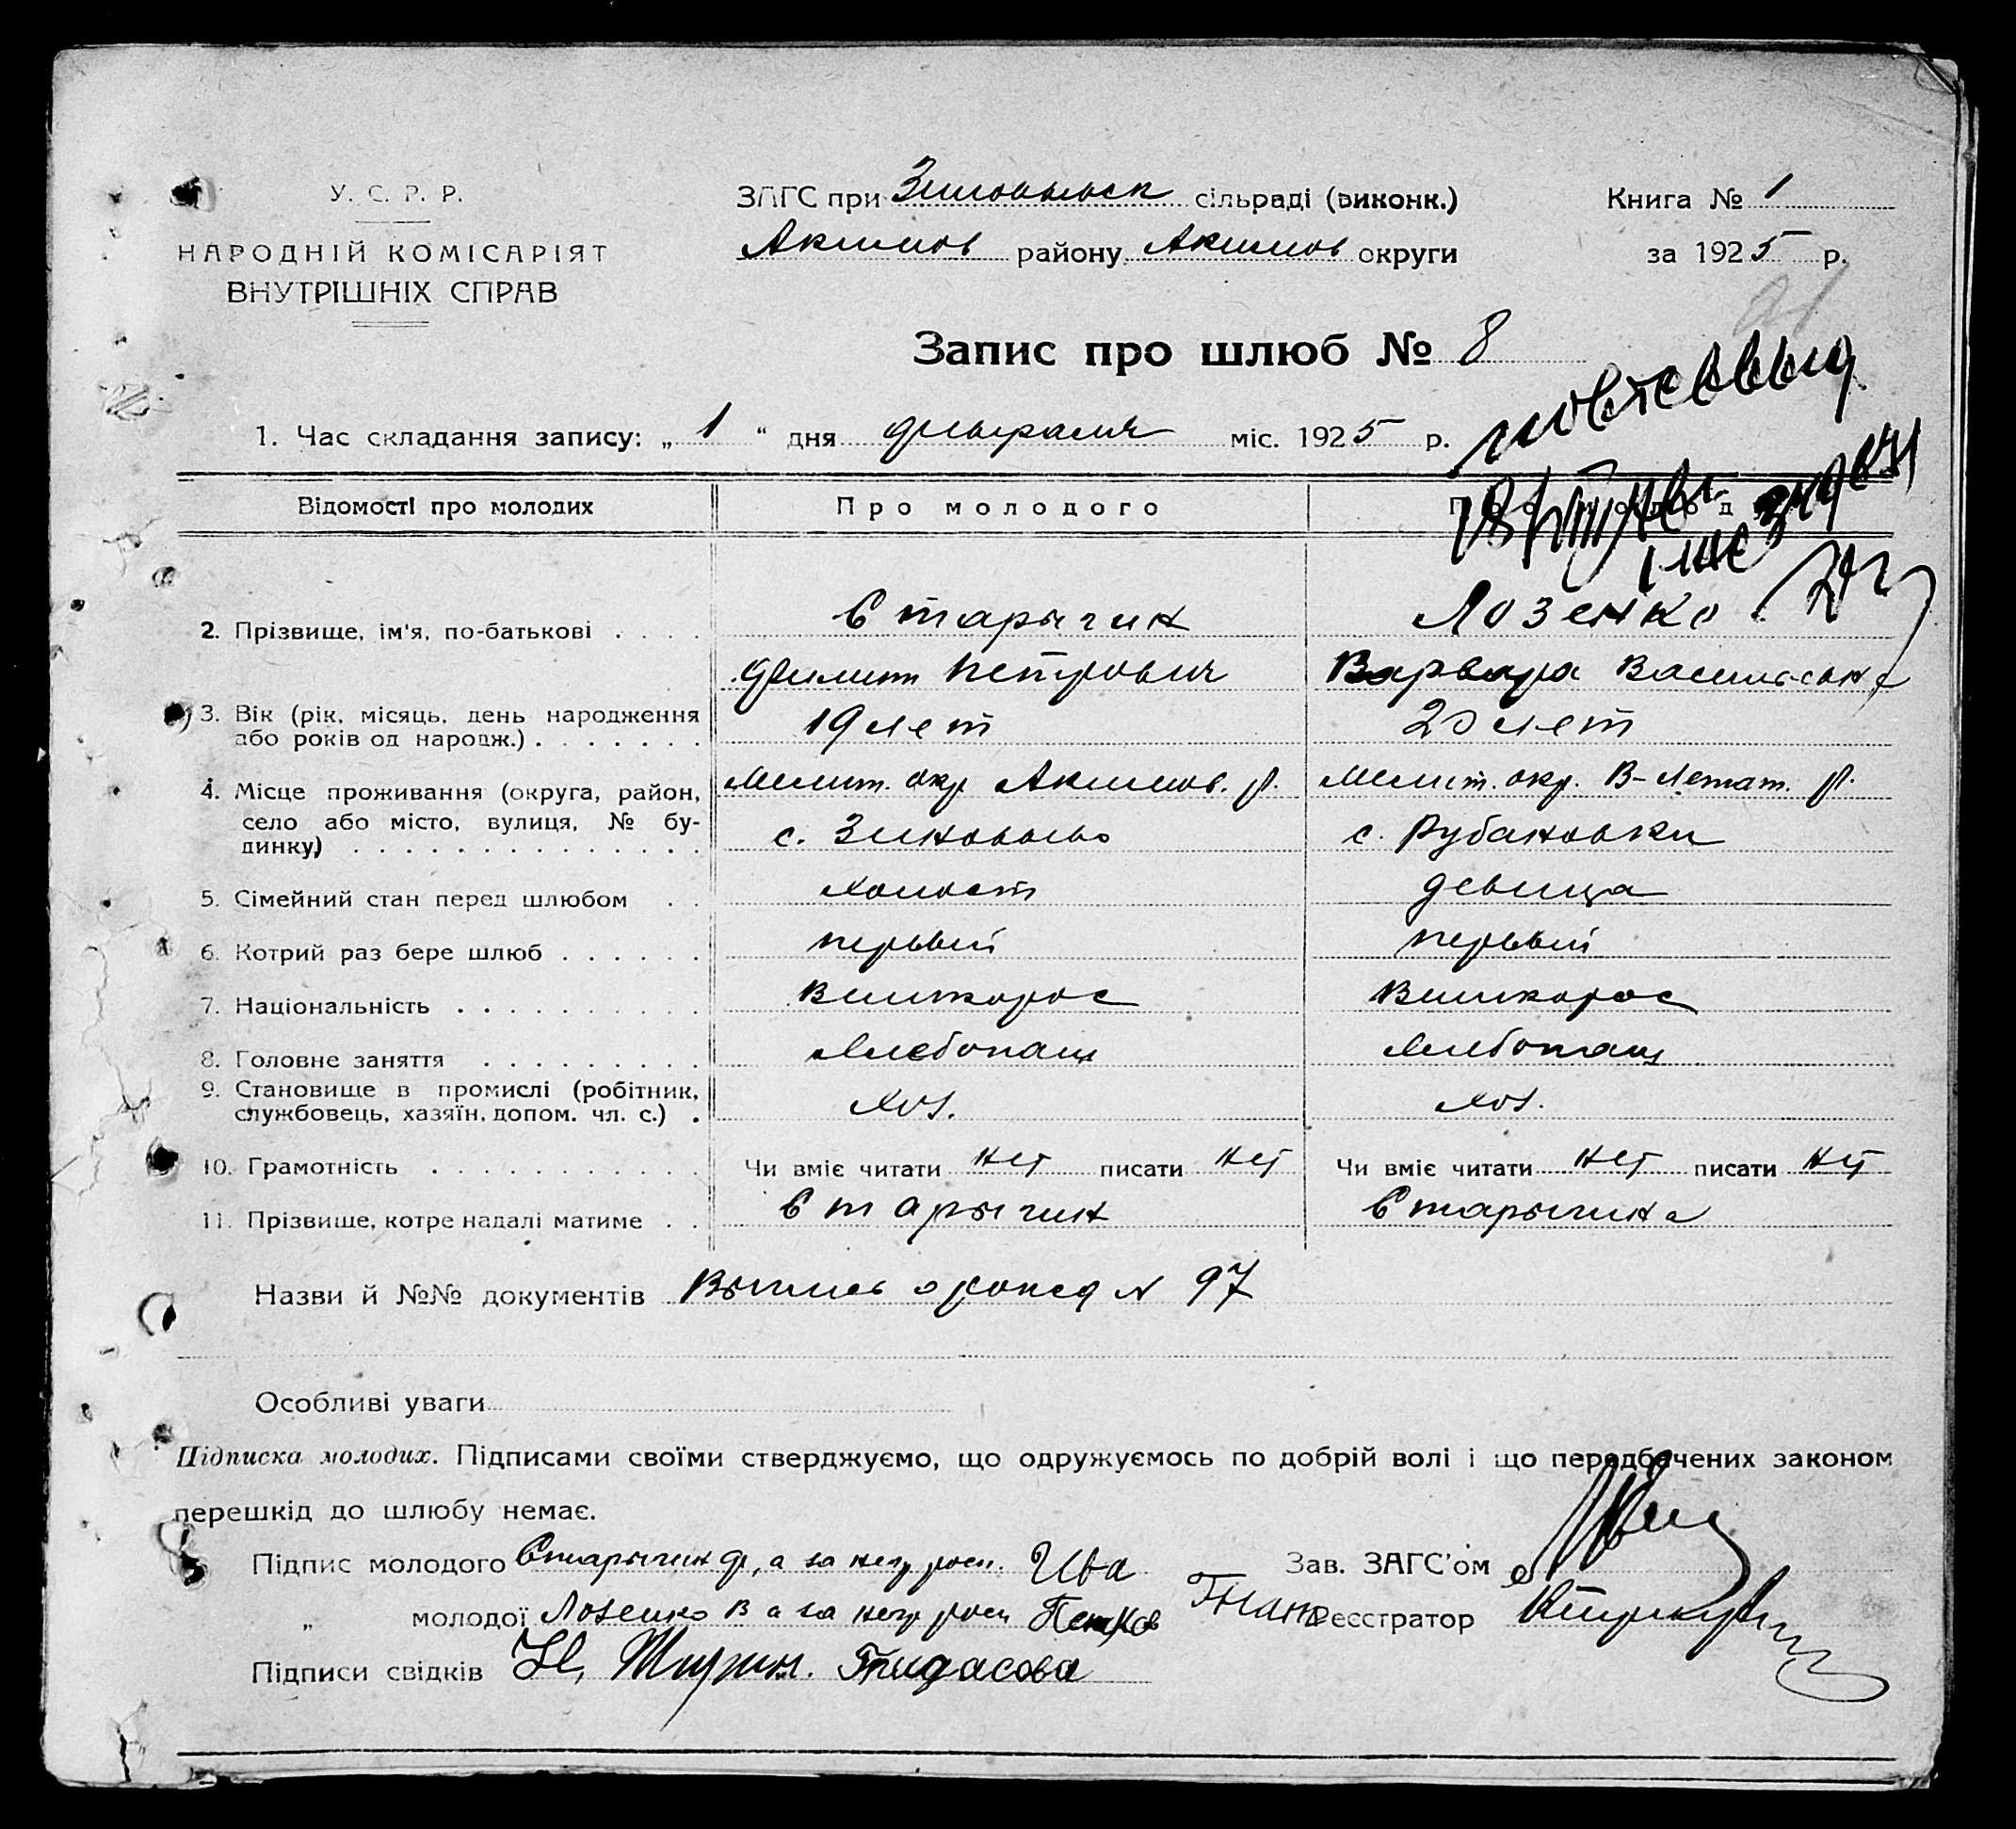 У. С. Р. Р.
НАРОДНІЙ КОМІСАРІЯТ
ВНУТРІШНІХ СПРАВ
ЗАГС при сільраді (виконк.)
Акимов району Акимов округи
Книга № 1
за 1925 р.
Запис про шлюб № 8
1. Час складання запису: „ 1 “ дня февраля міс. 1925 р.
Відомості про молодих
Про молодого
2. Прізвище, ім'я, по-батькові . . . .
Старычин
Лозенко
Филипп Петрович
Варвара Васильевна
3. Вік (рік, місяць, день народження
або років од народж.) . . . . . . .
19 лет
20 лет
4. Місце проживання (округа, район,
село або місто, вулиця, № бу-
динку) . . . . . . . . . . . . . .
Мелит. окр. Акимов. р.
Мелит. окр. В-Лепат. р.
с. Зиновьево
с. Рубановки
5. Сімейний стан перед шлюбом . .
холост
девица
6. Котрий раз бере шлюб . . . . . .
первый
первый
7. Національність . . . . . . . . . .
Великорос
Великорос
8. Головне заняття . . . . . . . . .
Хлебопаш
Хлебопаш
9. Становище в промислі (робітник,
службовець, хазяїн, допом. чл. с.) .
хоз.
хоз.
10. Грамотність . . . . . . . . . . .
Чи вміє читати нет писати нет
Чи вміє читати нет писати нет
11. Прізвище, котре надалі матиме . .
Старычин
Старычина
Назви й №№ документів Выпись о рожд № 97
Особливі уваги
Підписка молодих. Підписами своїми стверджуємо, що одружуємось по добрій волі і що передбачених законом
перешкід до шлюбу немає.
Підпис молодого Старычин Ф, а за негр росп. Ива
Зав. ЗАГС'ом
„ молодої Лозенко В а за негр росп
Реєстратор
Підписи свідків Гридасова